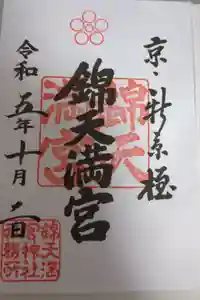 京・新京極
錦天満宮
錦天
満宮
令和五年十月 日
錦天満
宮神社
社務所